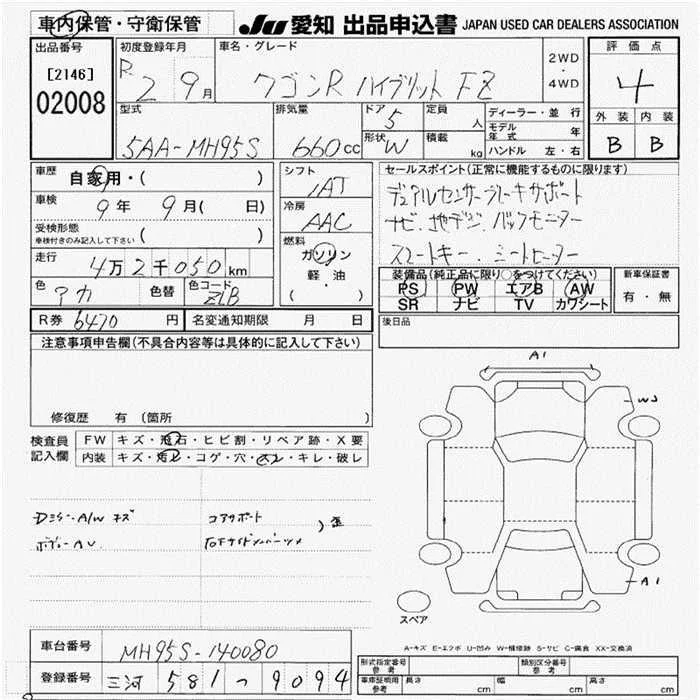 車内保管・守衛保管
JU 愛知 出品申込書 JAPAN USED CAR DEALERS ASSOCIATION
出品番号
[2146]
02008
初度登録年月
R2 9月
車名・グレード
ワゴンR ハイブリット FZ
2WD
・
4WD
評価点
4
外装 内装
B B
型式
5AA-MH95S
排気量
660cc
ドア
5
形状
W
定員
人
積載
kg
ディーラー・並行
モデル年式 年
ハンドル 左・右
車歴
自家用・( )
車検
9年 9月( 日)
受検形態
車検付きのみ記入して下さい ( )
走行
4万2千050km
色
アカ
色替
色コード
ZLB
シフト
IAT
冷房
AAC
燃料
ガソリン
軽・油
( )
セールスポイント(正常に機能するものに限ります)
デュアルセンサーブレーキサポート
ナビ、地デジ、バックモニター
スマートキー、シートヒーター
装備品(純正品に限り○をつけてください)
PS PW エアB AW
SR ナビ TV カワシート
新車保証書
有・無
R券 6470円
名変通知期限 月 日
後日品
注意事項申告欄(不具合内容等は具体的に記入して下さい)
修復歴 有 (箇所 )
検査員記入欄
FW キズ・飛石・ヒビ割・リペア跡・X要
内装 キズ・汚レ・コゲ・穴・スレ・キレ・破レ
A1
W3
A1
スペア
A-キズ E-エクボ U-凹み W-補修跡 S-サビ C-腐食 XX-交換済
コアサポート
歪
A/W キズ
車台番号
MH95S-140080
登録番号
三河 581 つ 9094
形式指定番号
参考
類別区分番号
参考
車庫証明用
参考
長さ cm 幅 cm 高さ cm